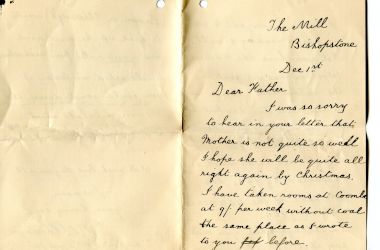 The Mill
Bishopstone
Dec 1st
Dear Father
I was so sorry
to hear in your letter that
Mother is not quite so well
I hope she will be quite all
right again by Christmas.
I have taken rooms at Coombe
at 9/- per week without coal
the same place as I wrote
to you before.